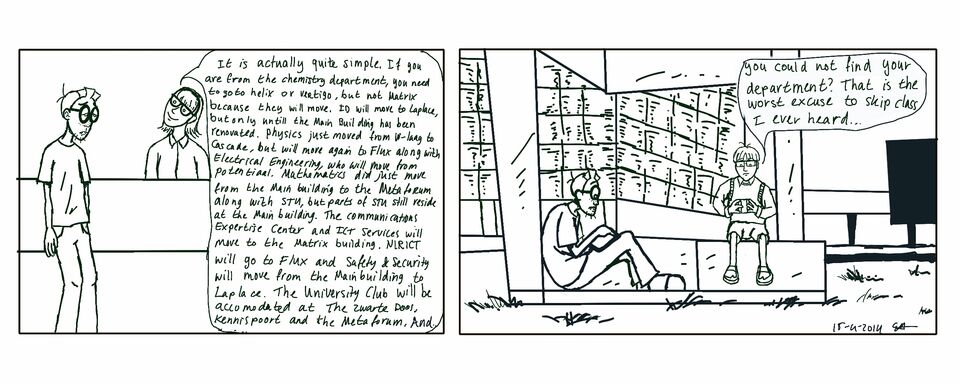 It is actually quite simple. If you
are from the chemistry department, you need
to go to helix or vertigo, but not Matrix
because they will move. ID will move to Laplace,
but only untill the Main Building has been
renovated. Physics just moved from N-laag to
Cascade, but will move again to Flux along with
Electrical Engineering, who will move from
potentiaal. Mathematics did just move
from the Main building to the Metaforum
along with STU, but parts of STU still reside
at the Main building. The communications
Expertise Center and ICT Services will
move to the Matrix building. NIRICT
will go to Flux and Safety & Security
will move from the Main building to
Laplace. The University Club will be
accomodated at The Zwarte Doos,
Kennispoort and the Metaforum, And
you could not find your
department? That is the
worst excuse to skip class
I ever heard...
15-4-2014